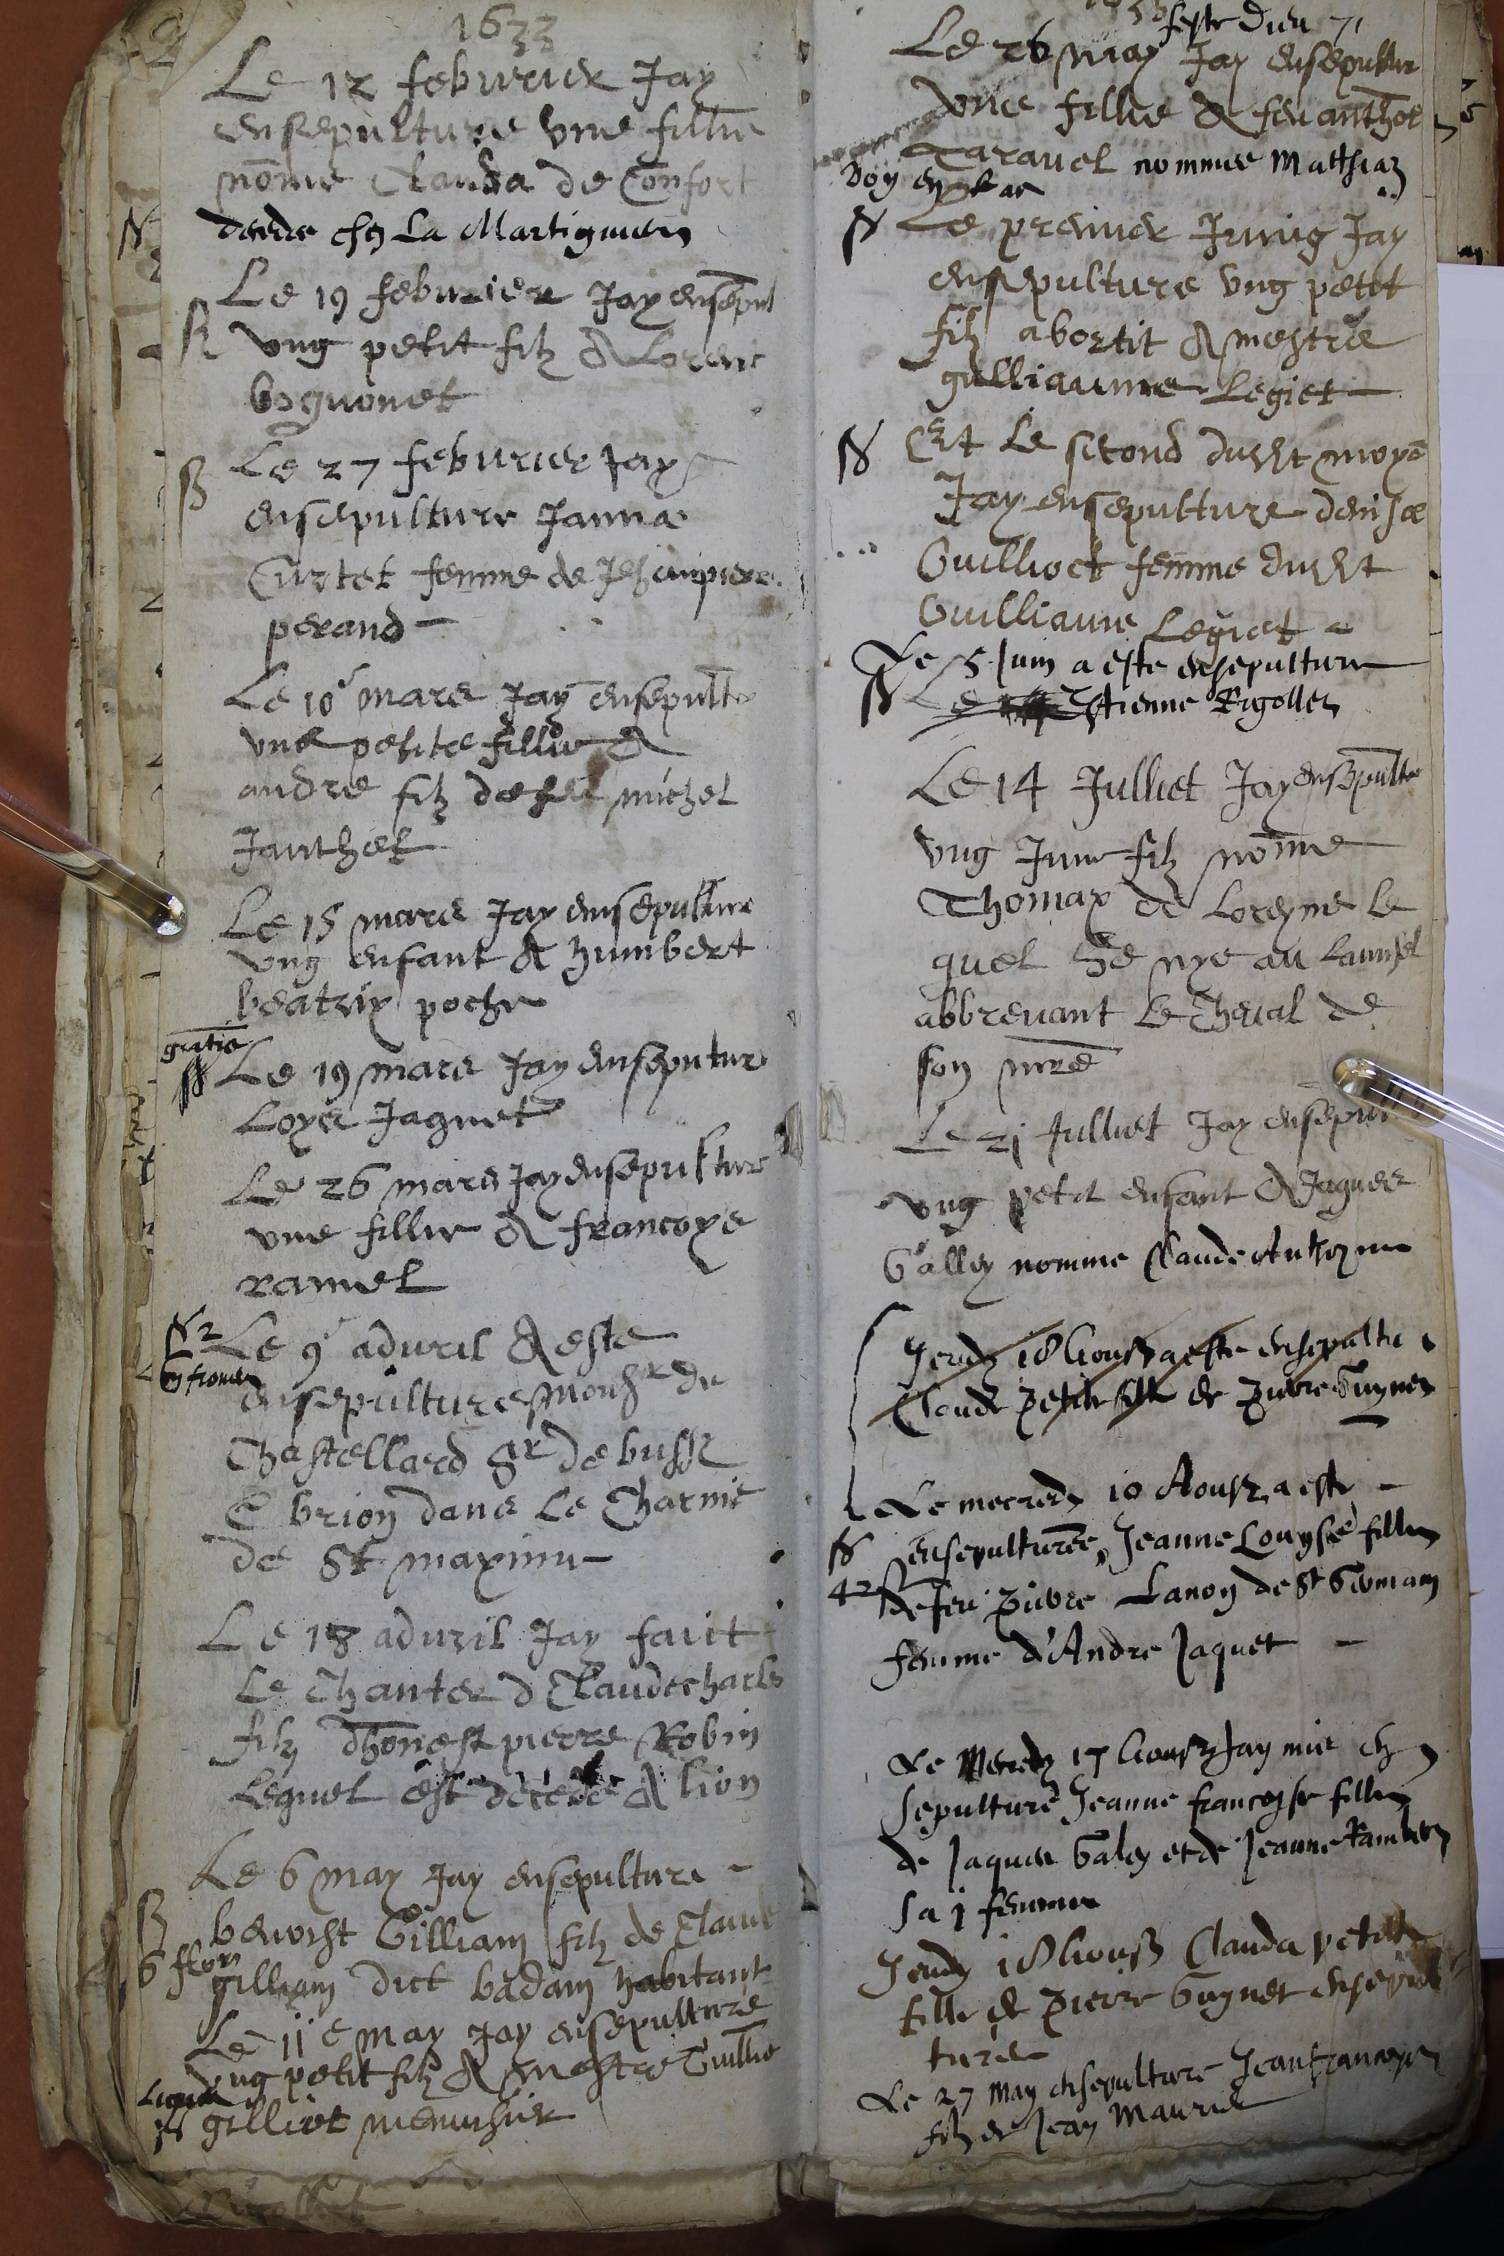 1633
Le 12 feburier Jay
ensepulture vne fillie
nōme Clauda de Confort
decede ches La Martigniere
Le 19 feburier Jay ensepul
vng petit filz A Lorent
boquonet
Le 27 feburier Jay
ensepulture Janna
Curtet femme de Jehanpierre
perand
Le 10 mars Jay ensepult
vne petite fillie A
andre filz de feu michel
Janthet
Le 15 mars Jay ensepulture
vng enfant A humbert
beatrix poche
gratis
Le 19 mars Jay enseputur
Loyse Jaquet
Le 26 mars Jay ensepulture
vne fillie A francoys
ramel
Le 9 apuril A este
ensepulture Monsr du
Chastellard Sr de buss
& brion dans Le Charnie
de St maximi
Le 18 apuril Jay faict
Le Chanter d Claudecharles
filz dhonest pierre Robin
Lequel est decede A lion
Le 6 may Jay ensepulture
benoist Gilliam filz de Claude
6 flor
gilliam dict badam habitant
Le 11 e may Jay ensepulture
vng petit filz A mestre Guillie
gilliot menusier
feste Dieu
Le 26 may Jay ensepultur
vne fillie A feu anthoe
Taravel nommee Matthia
Le premier Juing Jay
ensepulture vng petit
filz abortit A mestre
gulliaume Legiet
Et Le second dudit moys
Jay ensepulture denise
Guilliot femme dudit
Guilliaume Legiet
Le 5 Juin a este ensepulture
Le Estienne Rigollet
Le 14 Julliet Jay ensepult
vng Jeune filz nōme
Thomas de Loreyne le
quel se nye au
abbreuant le Cheual de
son mre
Le 21 Julliet Jay ensepul
vng petit enfant A Jaques
Galley nomme Claude Anthoyne
Jeudy 18 Aoust a este ensepultu
Claude petite fille de Pierre Guynet
Le mecredy 10 Aoust a este
ensepulturée Jeanne Louyse fillie
de feu Pierre Lanoy de St Germain
femme d'Andre Jaquet
Le Mecredy 17 Aoust Jay mis en
sepulture Jeanne francoyse fillie
de Jaques Galey et de Jeanne Rambert
sa femme
Jeudy 18 Aoust Clauda petite
fille de Pierre Guynet ensepul
turée
Le 27 May ensepulture Jean francoys
filz de Jean Mauris